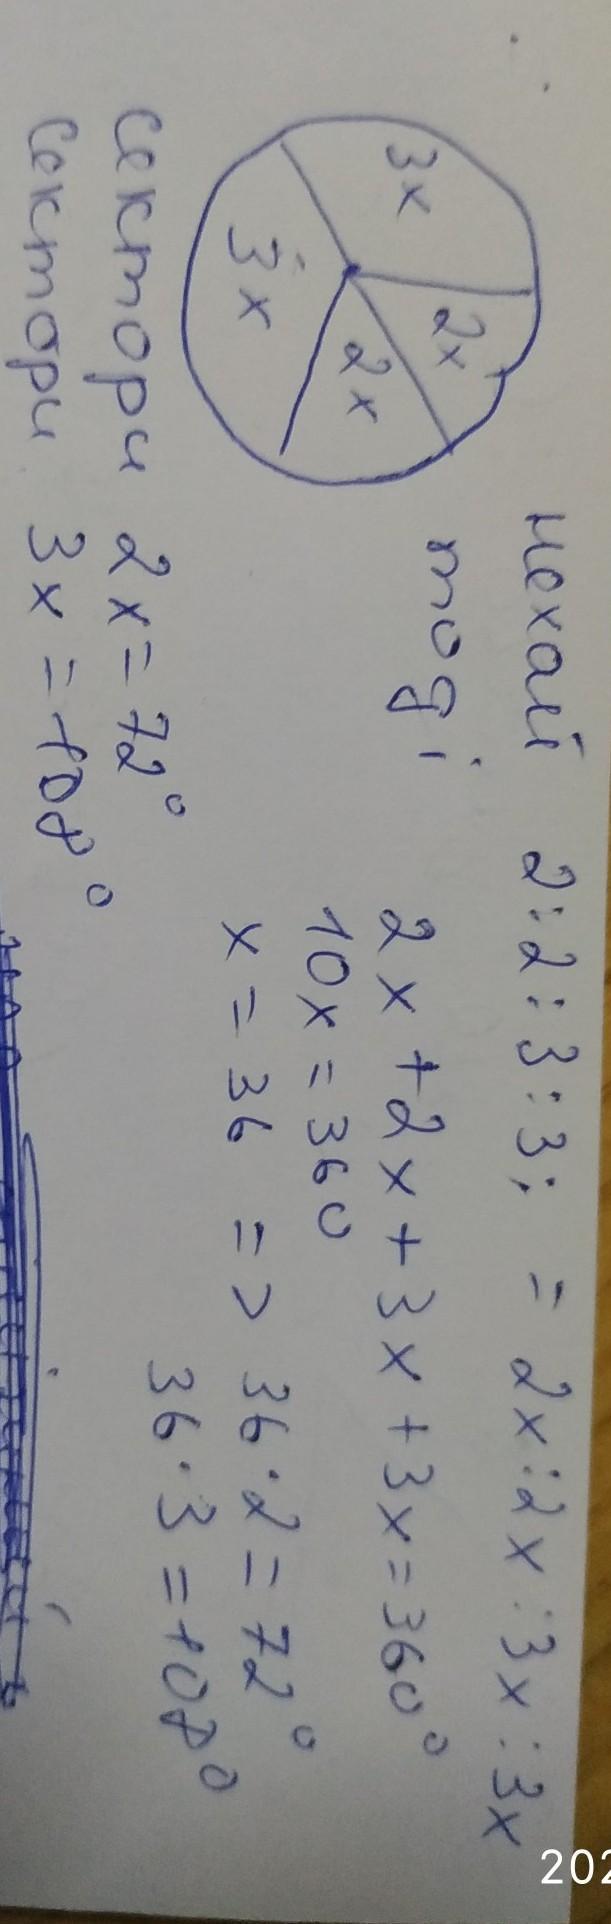 нехай 2:2:3:3; = 2x:2x:3x:3x
тоді 2x+2x+3x+3x=360°
10x=360
x=36 => 36·2=72°
36·3=108°
3x
2x
2x
3x
сектори 2x=72°
сектори 3x=108°
202